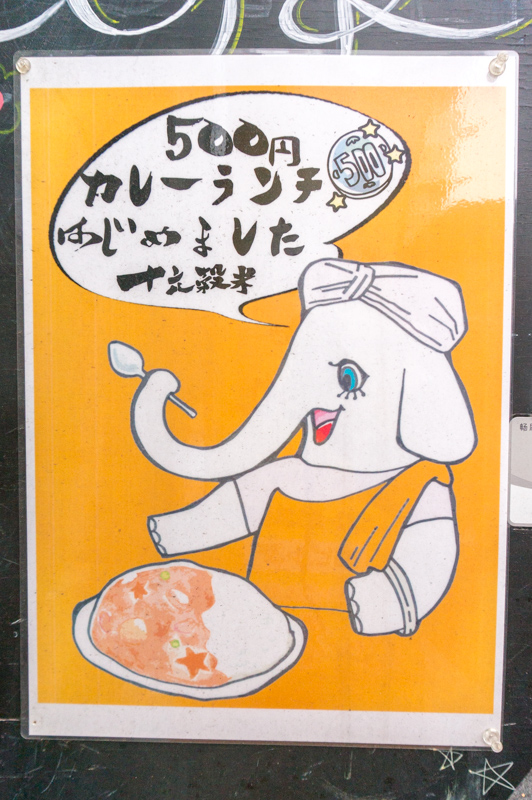 500円
500
カレーランチ
はじめました
十六穀米